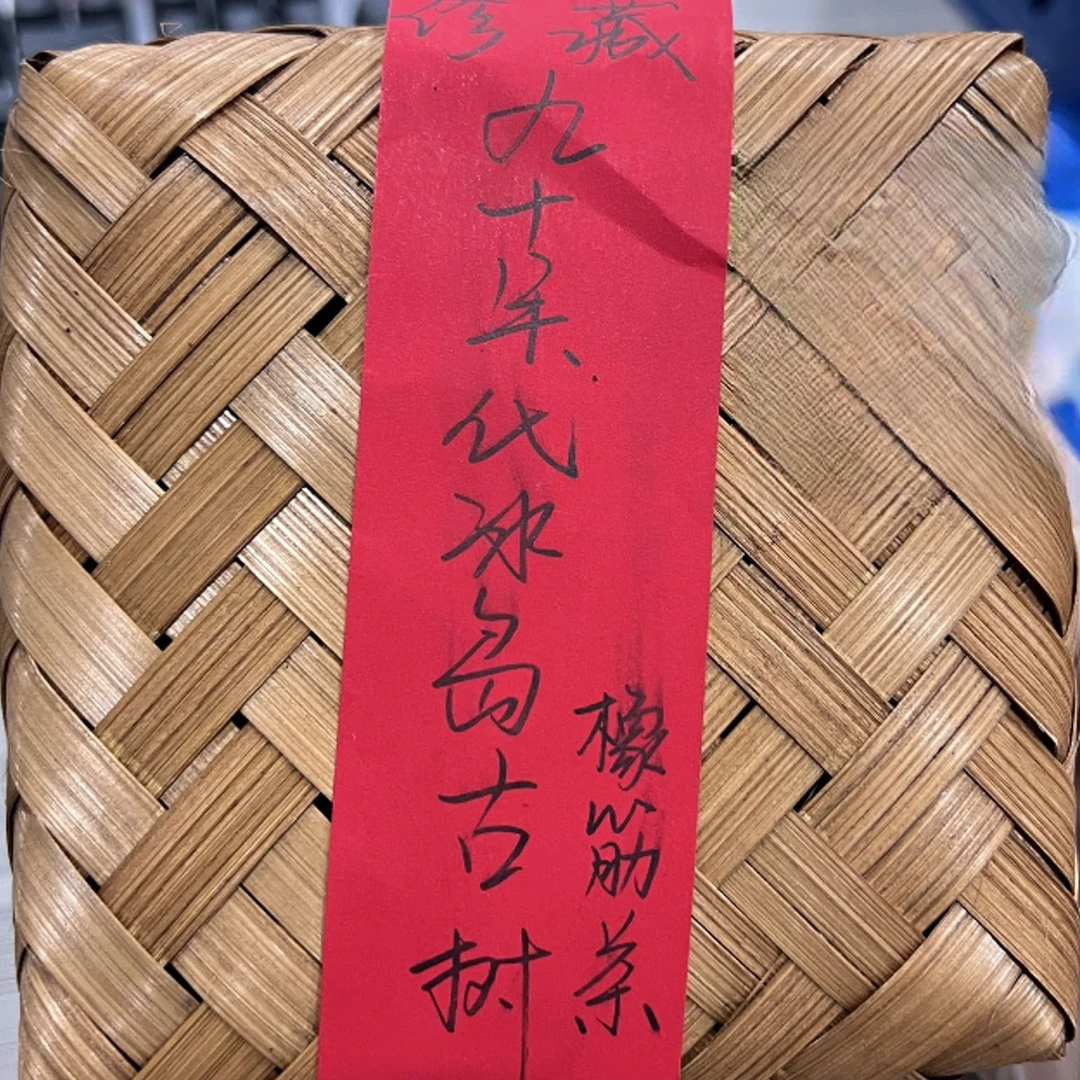 珍藏
九十年代冰岛古树
橡筋茶